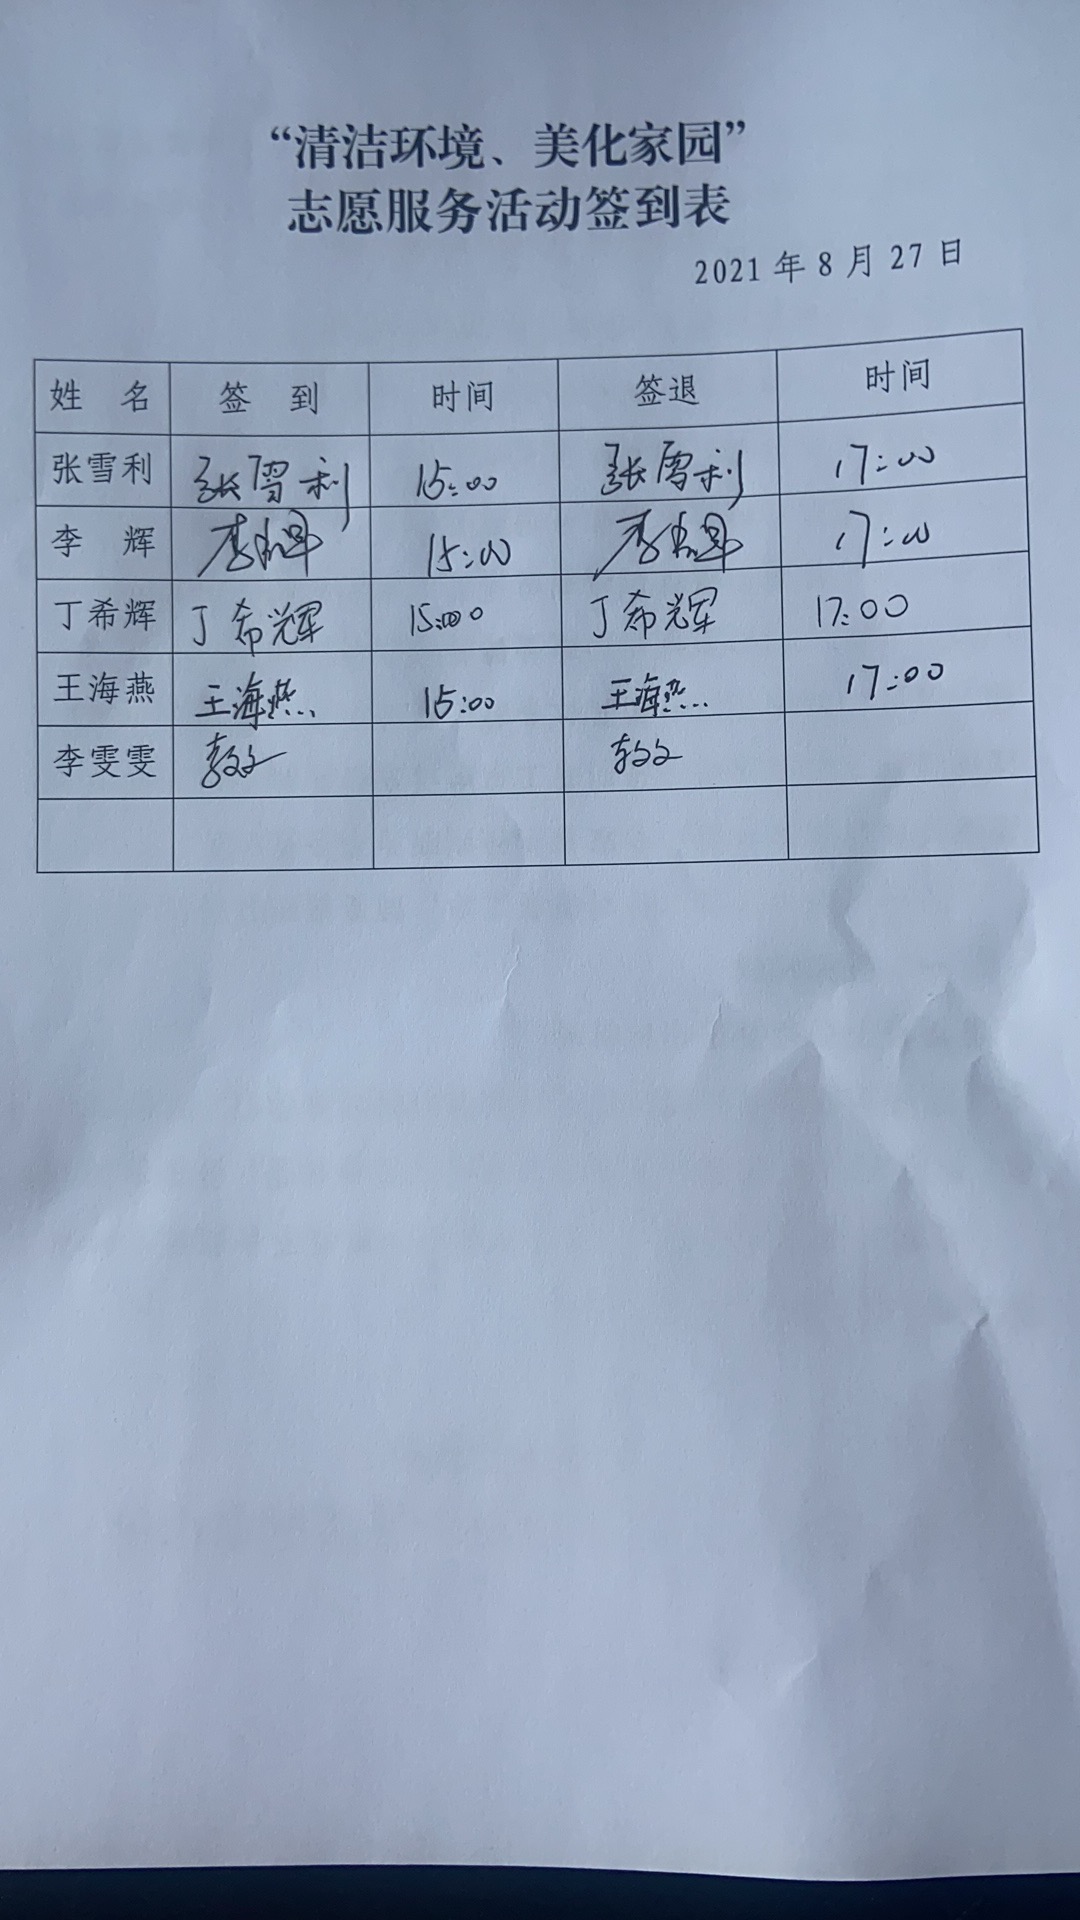 “清洁环境、美化家园”
志愿服务活动签到表
2021 年 8 月 27 日
姓 名 签 到 时间 签退 时间
张雪利 张雪利 15:00 张雪利 17:00
李 辉 李辉 15:00 李辉 17:00
丁希辉 丁希辉 15:000 丁希辉 17:00
王海燕 王海燕 15:00 王海燕 17:00
李雯雯 李文文 李文文